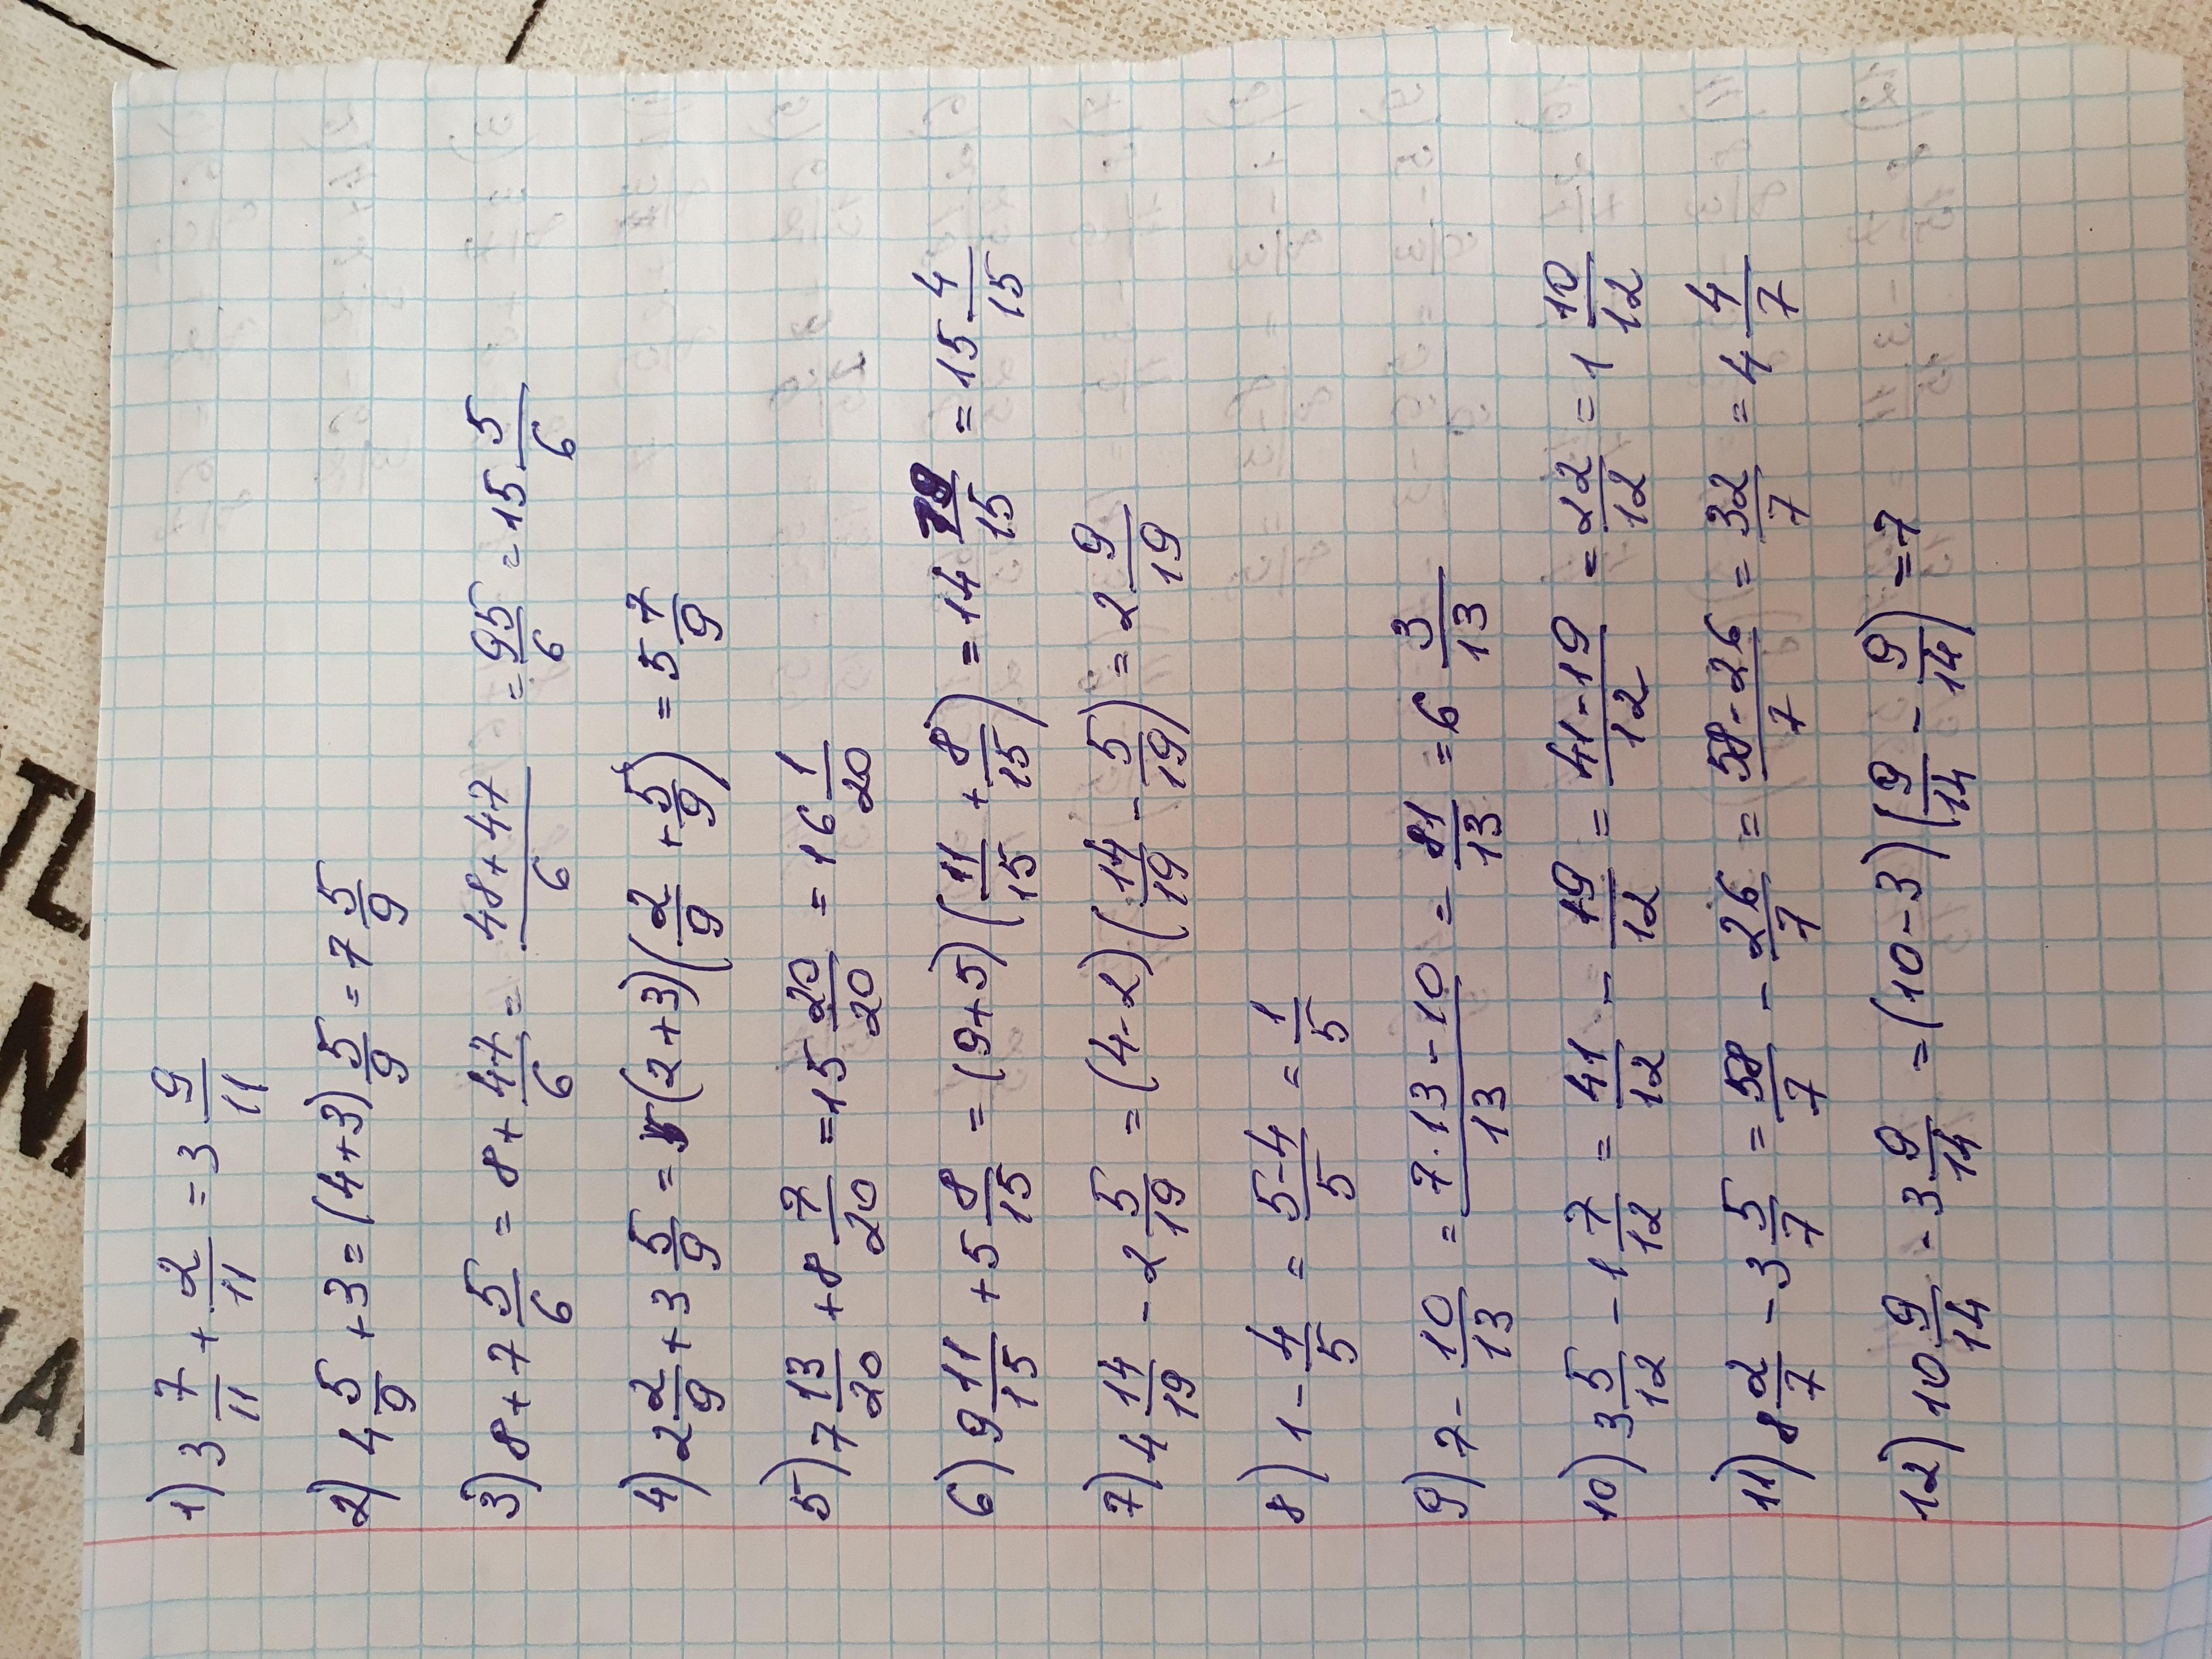 1) 3 7/11 + 2/11 = 3 9/11
2) 4 5/9 + 3 = (4+3) 5/9 = 7 5/9
3) 8 + 7 5/6 = 8 + 47/6 = 48+47/6 = 95/6 = 15 5/6
4) 2 2/9 + 3 5/9 = (2+3)(2/9 + 5/9) = 5 7/9
5) 7 13/20 + 8 7/20 = 15 20/20 = 16 1/20
6) 9 11/15 + 5 8/15 = (9+5)(11/15 + 8/15) = 14 19/15 = 15 4/15
7) 4 14/19 - 2 5/19 = (4-2)(14/19 - 5/19) = 2 9/19
8) 1 - 4/5 = 5-4/5 = 1/5
9) 7 - 10/13 = 7·13-10/13 = 81/13 = 6 3/13
10) 3 5/12 - 1 7/12 = 41/12 - 19/12 = 41-19/12 = 22/12 = 1 10/12
11) 8 2/7 - 3 5/7 = 58/7 - 26/7 = 58-26/7 = 32/7 = 4 4/7
12) 10 9/14 - 3 9/14 = (10-3)(9/14 - 9/14) = 7